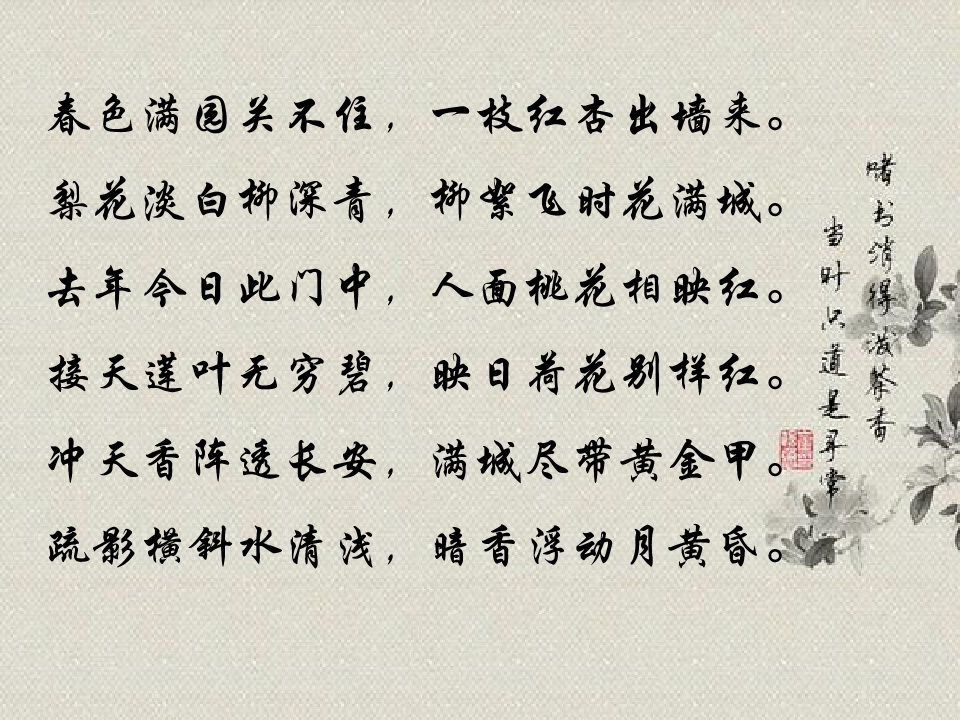 春色满园关不住，一枝红杏出墙来。
梨花淡白柳深青，柳絮飞时花满城。
去年今日此门中，人面桃花相映红。
接天莲叶无穷碧，映日荷花别样红。
冲天香阵透长安，满城尽带黄金甲。
疏影横斜水清浅，暗香浮动月黄昏。
赌书消得泼茶香
当时只道是寻常